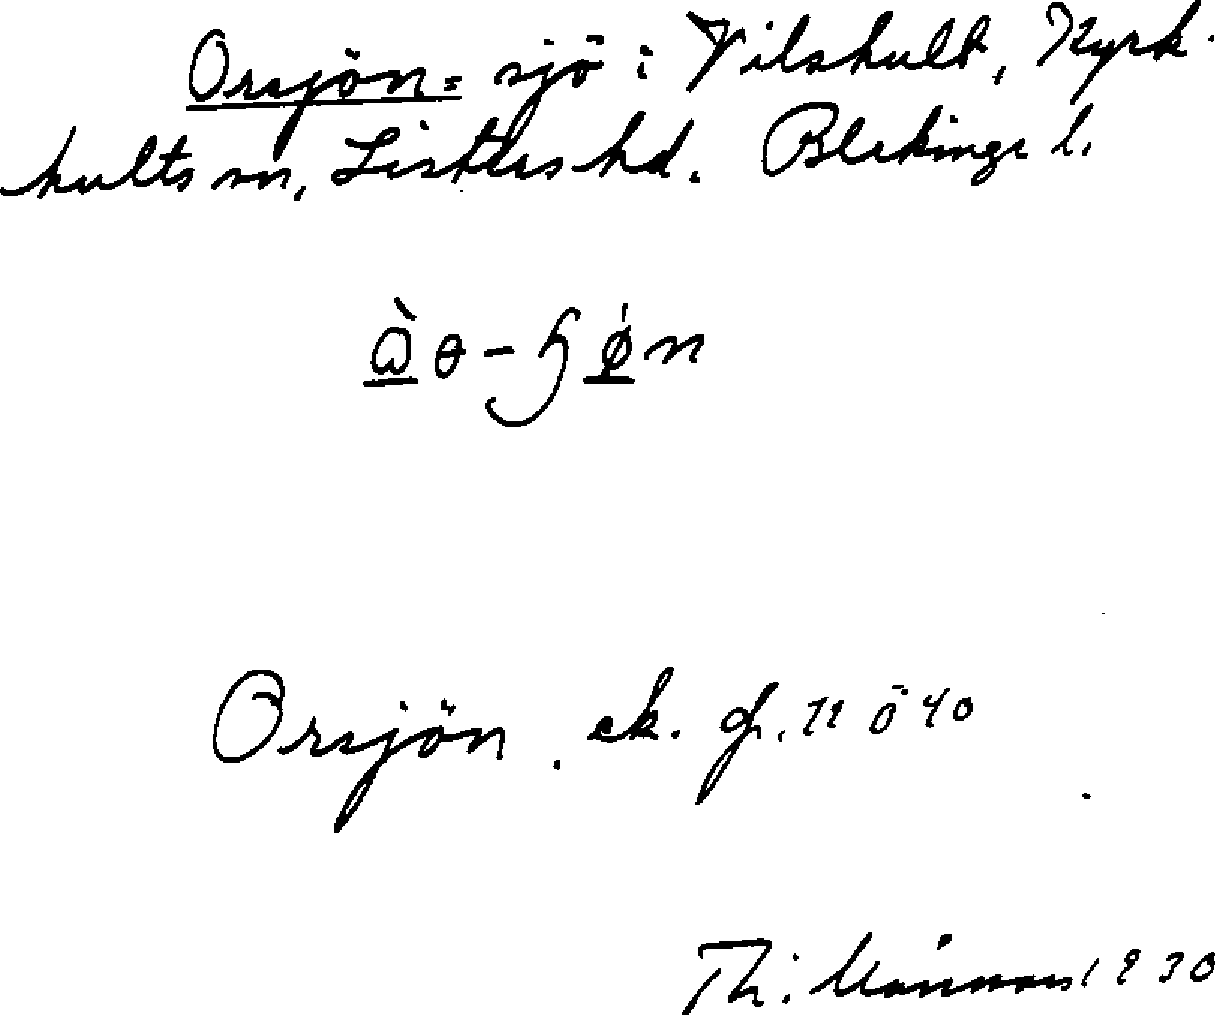 Orsjön = sjö i Vilshult, Kyrk-
hults sn, Listers hd. Blekinge l.
Orsjön. ek. 11 ö 40
Th: 1930